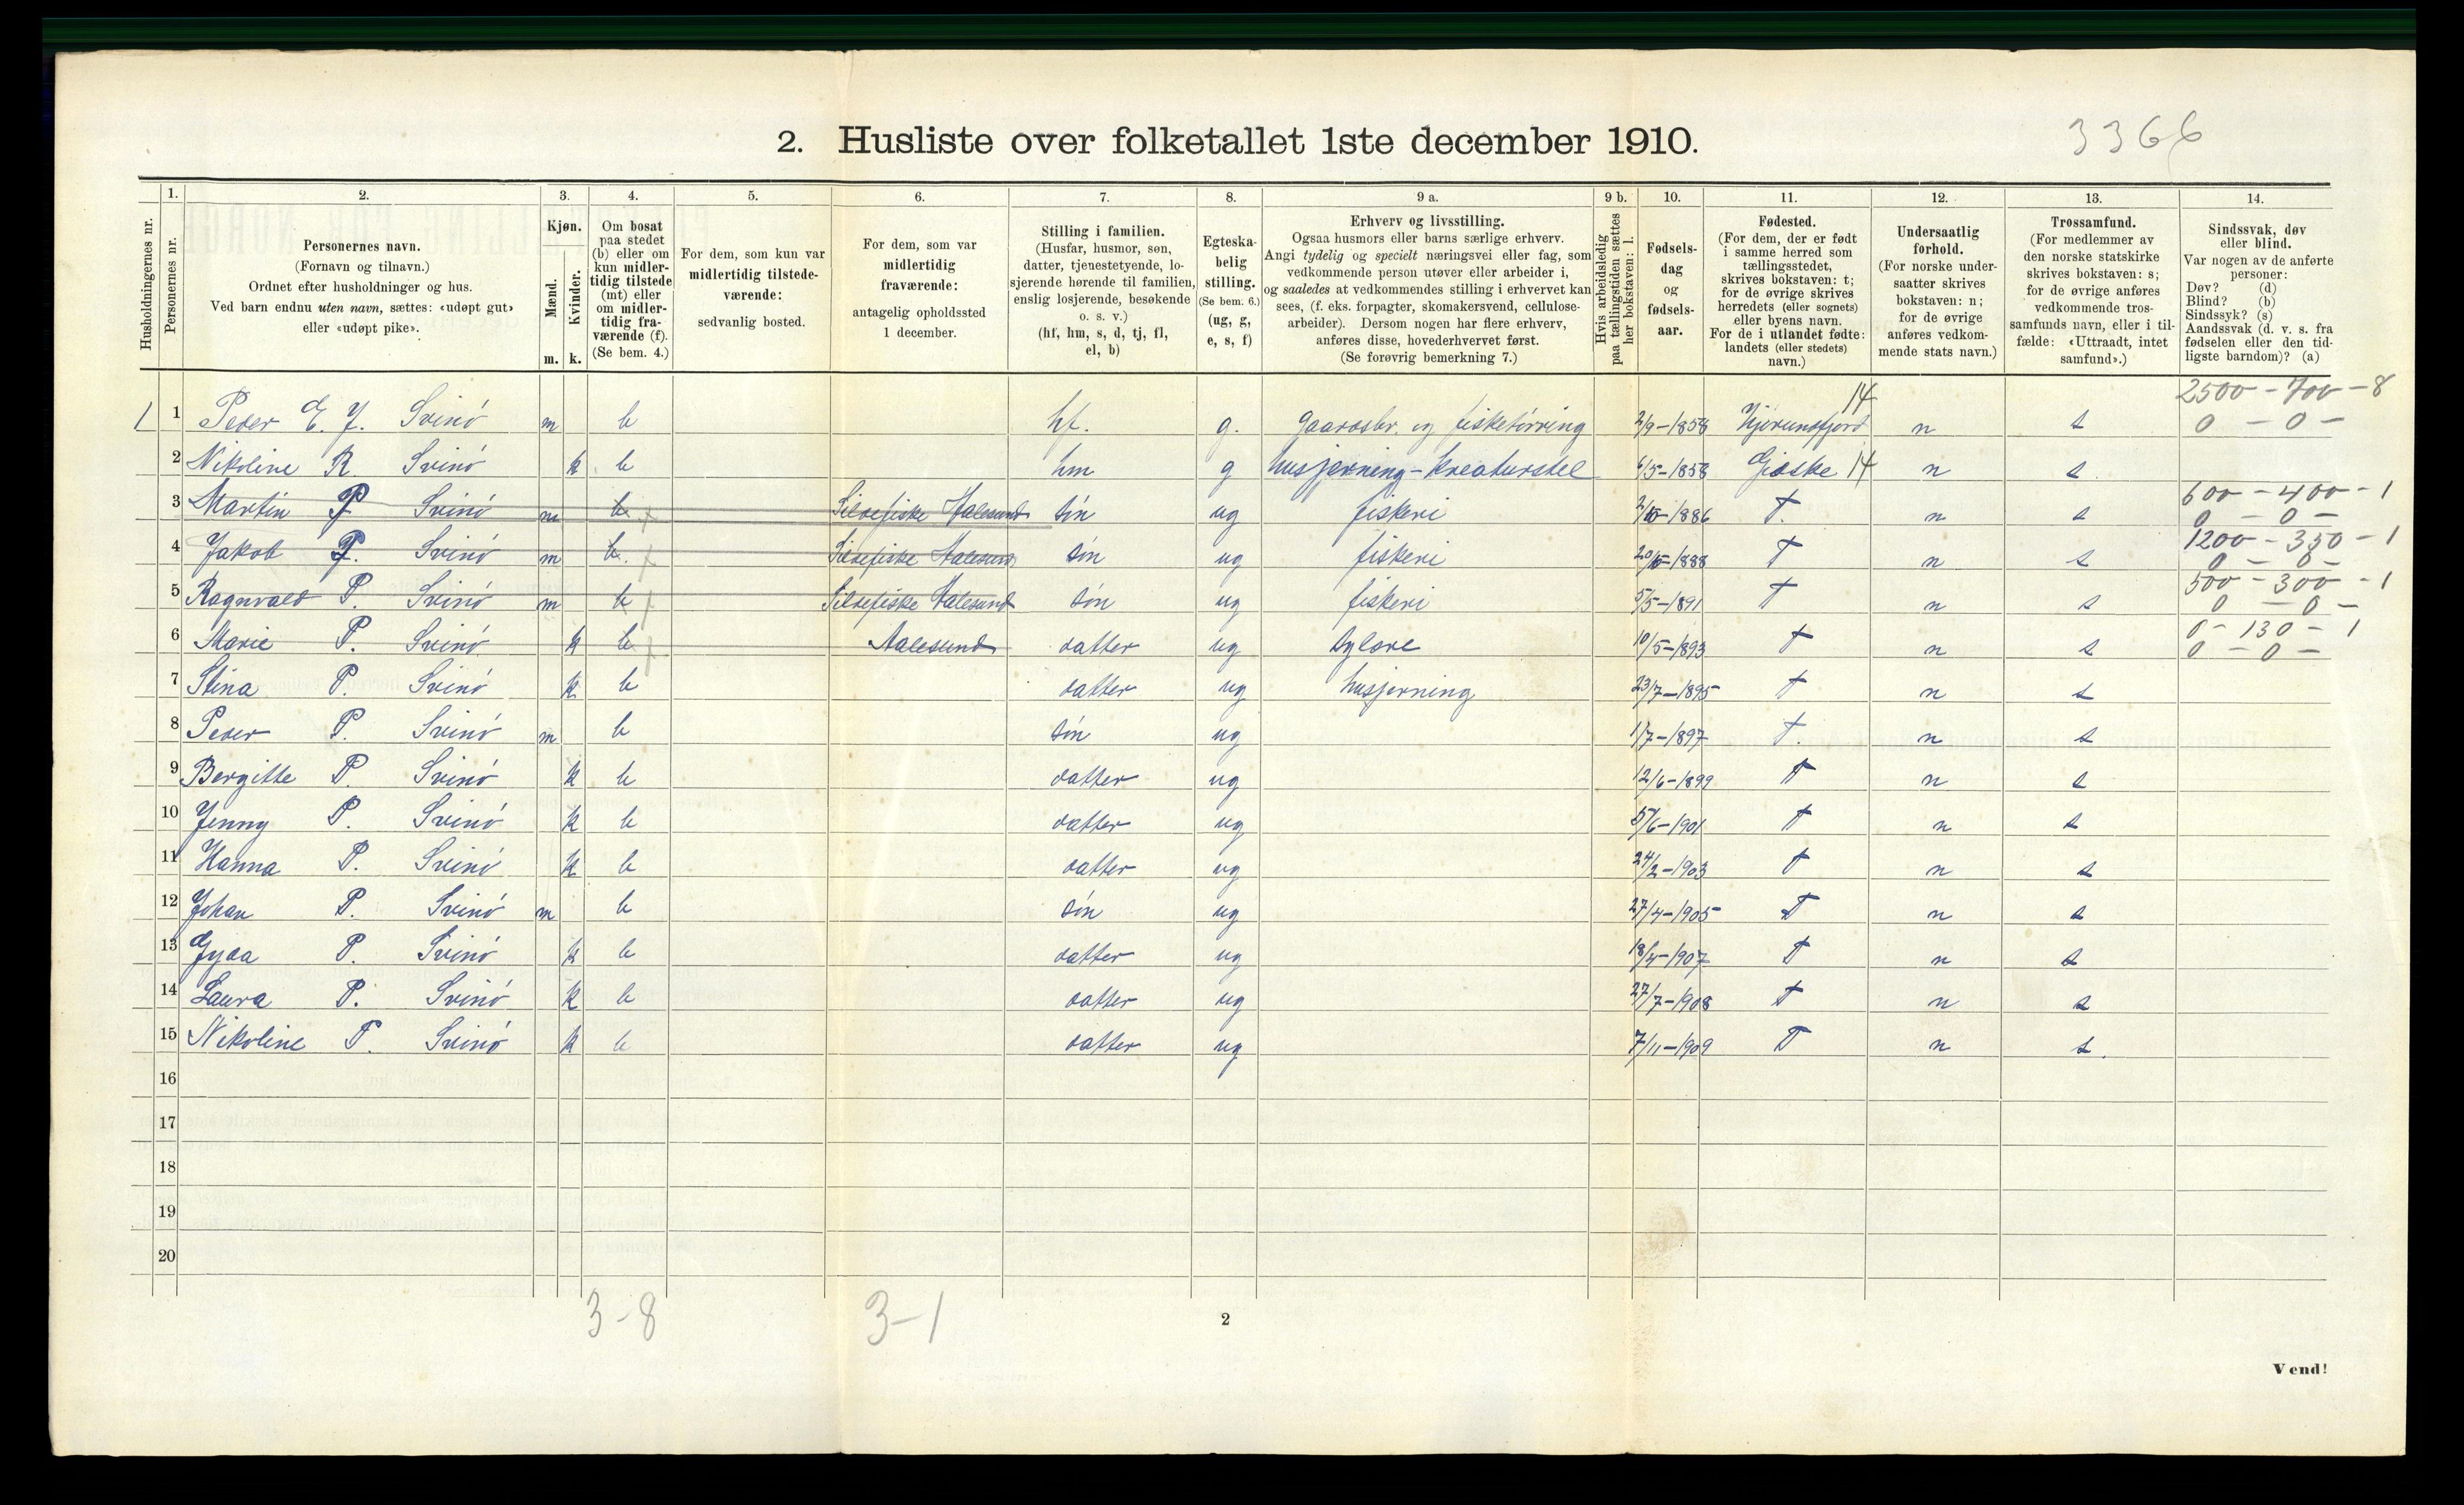 2. Husliste over folketallet 1ste december 1910.
3366
Husholdningernes nr.
1.
Personernes nr.
2.
Personernes navn.
(Fornavn og tilnavn.)
Ordnet efter husholdninger og hus.
Ved barn endnu uten navn, sættes: «udøpt gut»
eller «udøpt pike».
3.
Kjøn.
Mænd.
Kvinder.
m. k.
4.
Om bosat
paa stedet
(b) eller om
kun midler-
tidig tilstede
(mt) eller
om midler-
tidig fra-
værende (f).
(Se bem. 4.)
5.
For dem, som kun var
midlertidig tilstede-
værende:
sedvanlig bosted.
6.
For dem, som var
midlertidig
fraværende:
antagelig opholdssted
1 december.
7.
Stilling i familien.
(Husfar, husmor, søn,
datter, tjenestetyende, lo-
sjerende hørende til familien,
enslig losjerende, besøkende
o. s. v.)
(hf, hm, s, d, tj, fl,
el, b)
8.
Egteska-
belig
stilling.
(Se bem. 6.)
(ug, g,
e, s, f)
9 a.
Erhverv og livsstilling.
Ogsaa husmors eller barns særlige erhverv.
Angi tydelig og specielt næringsvei eller fag, som
vedkommende person utøver eller arbeider i,
og saaledes at vedkommendes stilling i erhvervet kan
sees, (f. eks. forpagter, skomakersvend, cellulose-
arbeider). Dersom nogen har flere erhverv,
anføres disse, hovederhvervet først.
(Se forøvrig bemerkning 7.)
9 b.
Hvis arbeidsledig
paa tællingstiden sættes
her bokstaven: l.
10.
Fødsels-
dag
og
fødsels-
aar.
11.
Fødested.
(For dem, der er født
i samme herred som
tællingsstedet,
skrives bokstaven: t;
for de øvrige skrives
herredets (eller sognets)
eller byens navn.
For de i utlandet fødte:
landets (eller stedets)
navn.)
12.
Undersaatlig
forhold.
(For norske under-
saatter skrives
bokstaven: n;
for de øvrige
anføres vedkom-
mende stats navn.)
13.
Trossamfund.
(For medlemmer av
den norske statskirke
skrives bokstaven: s;
for de øvrige anføres
vedkommende tros-
samfunds navn, eller i til-
fælde: «Uttraadt, intet
samfund».)
14.
Sindssvak, døv
eller blind.
Var nogen av de anførte
personer:
Døv? (d)
Blind? (b)
Sindssyk? (s)
Aandssvak (d. v. s. fra
fødselen eller den tid-
ligste barndom)? (a)
14 2500 - 700 - 8
1 1 Peder E. J. Svinö m b hf. g. gaardsbr. og fisketörring 2/9-1858 Hjörundfjord n s 0 - 0 -
2 Nikoline R Svinö k b hm g husjerning-kreaturstel 6/5-1858 Gjöske 14 n s
600 - 400 - 1
3 Martin P Svinö m b Sildefiske Aalesund sön ug fiskeri 2/10-1886 T. n s 0 - 0 -
1200 - 350 - 1
4 Jakob P. Svinö m b. Sildefiske Aalesund sön ug fiskeri 20/10-1888 T n s 0 - 0 -
500 - 300 - 1
5 Ragnvald P. Svinö m b Sildefiske Aalesund sön ug fiskeri 5/5-1891 T n s 0 - 0 -
0 - 130 - 1
6 Marie P. Svinö k b Aalesund datter ug sylære 10/5-1893 T n s 0 - 0 -
7 Stina P. Svinö k b datter ug husjerning 23/7-1895 T n s
8 Peder P. Svinö m b sön ug 1/7-1897 T. n s
9 Bergitte P Svinö k b datter ug 12/6-1899 T n s
10 Jenny P. Svinö k b datter ug 5/6-1901 T n s
11 Hanna P. Svinö k b datter ug 24/2-1903 T n s
12 Johan P. Svinö m b sön ug 27/4-1905 T n s
13 Gyda P. Svinö k b datter ug 18/4-1907 T n s
14 Laura P. Svinö k b datter ug 27/7-1908 T n s
15 Nikoline P. Svinö k b datter ug 7/11-1909 T n s.
16
17
18
19
20
3-8 3-1 2
Vend!